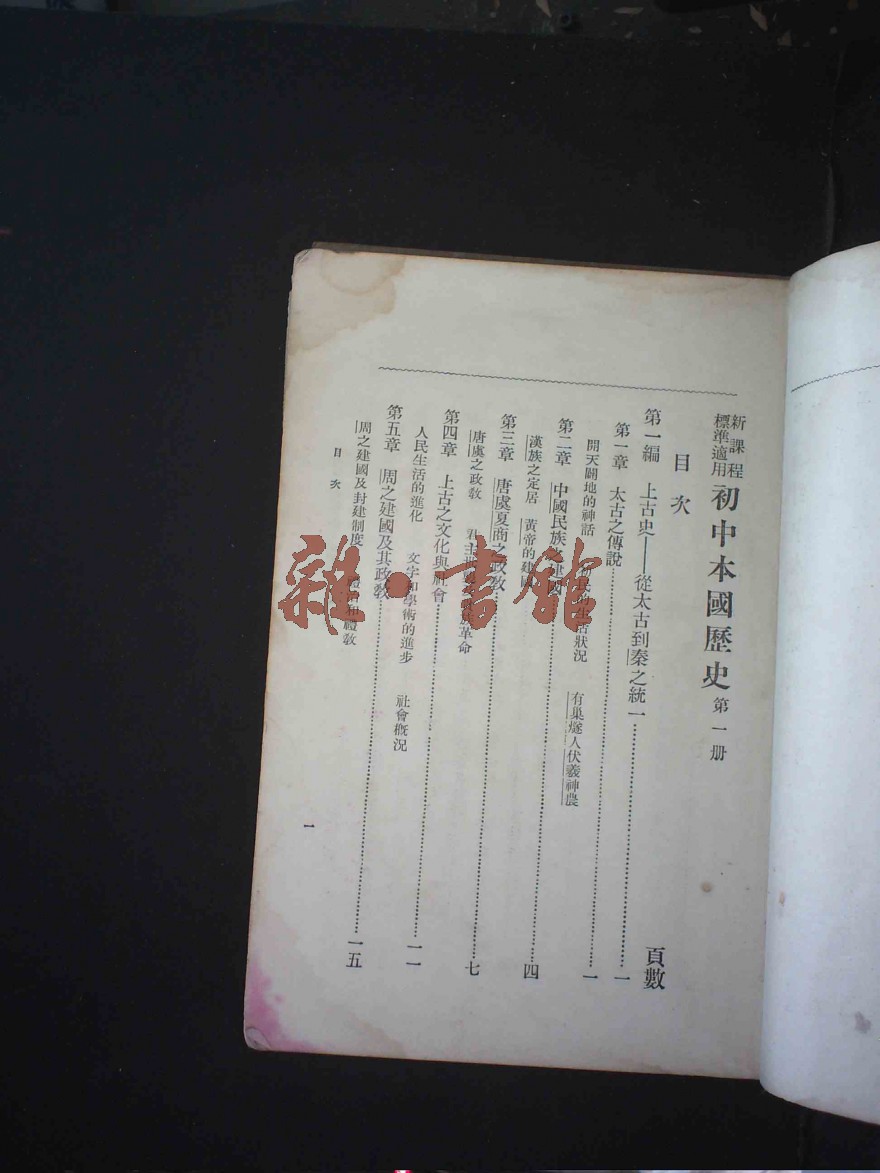 新課程
標準適用
初中本國歷史 第一册
目次
頁數
第一編 上古史——從太古到秦之統一 一
第一章 太古之傳說 一
開天闢地的神話 生活狀況 有巢燧人伏羲神農
第二章 中國民族之建國 四
漢族之定居 黃帝的建國
第三章 唐虞夏商之政教 七
唐虞之政教 革命
第四章 上古之文化與社會 一一
人民生活的進化 文字和學術的進步 社會概況
第五章 周之建國及其政教 一五
周之建國及封建制度 禮教
目次
一
雜·書館